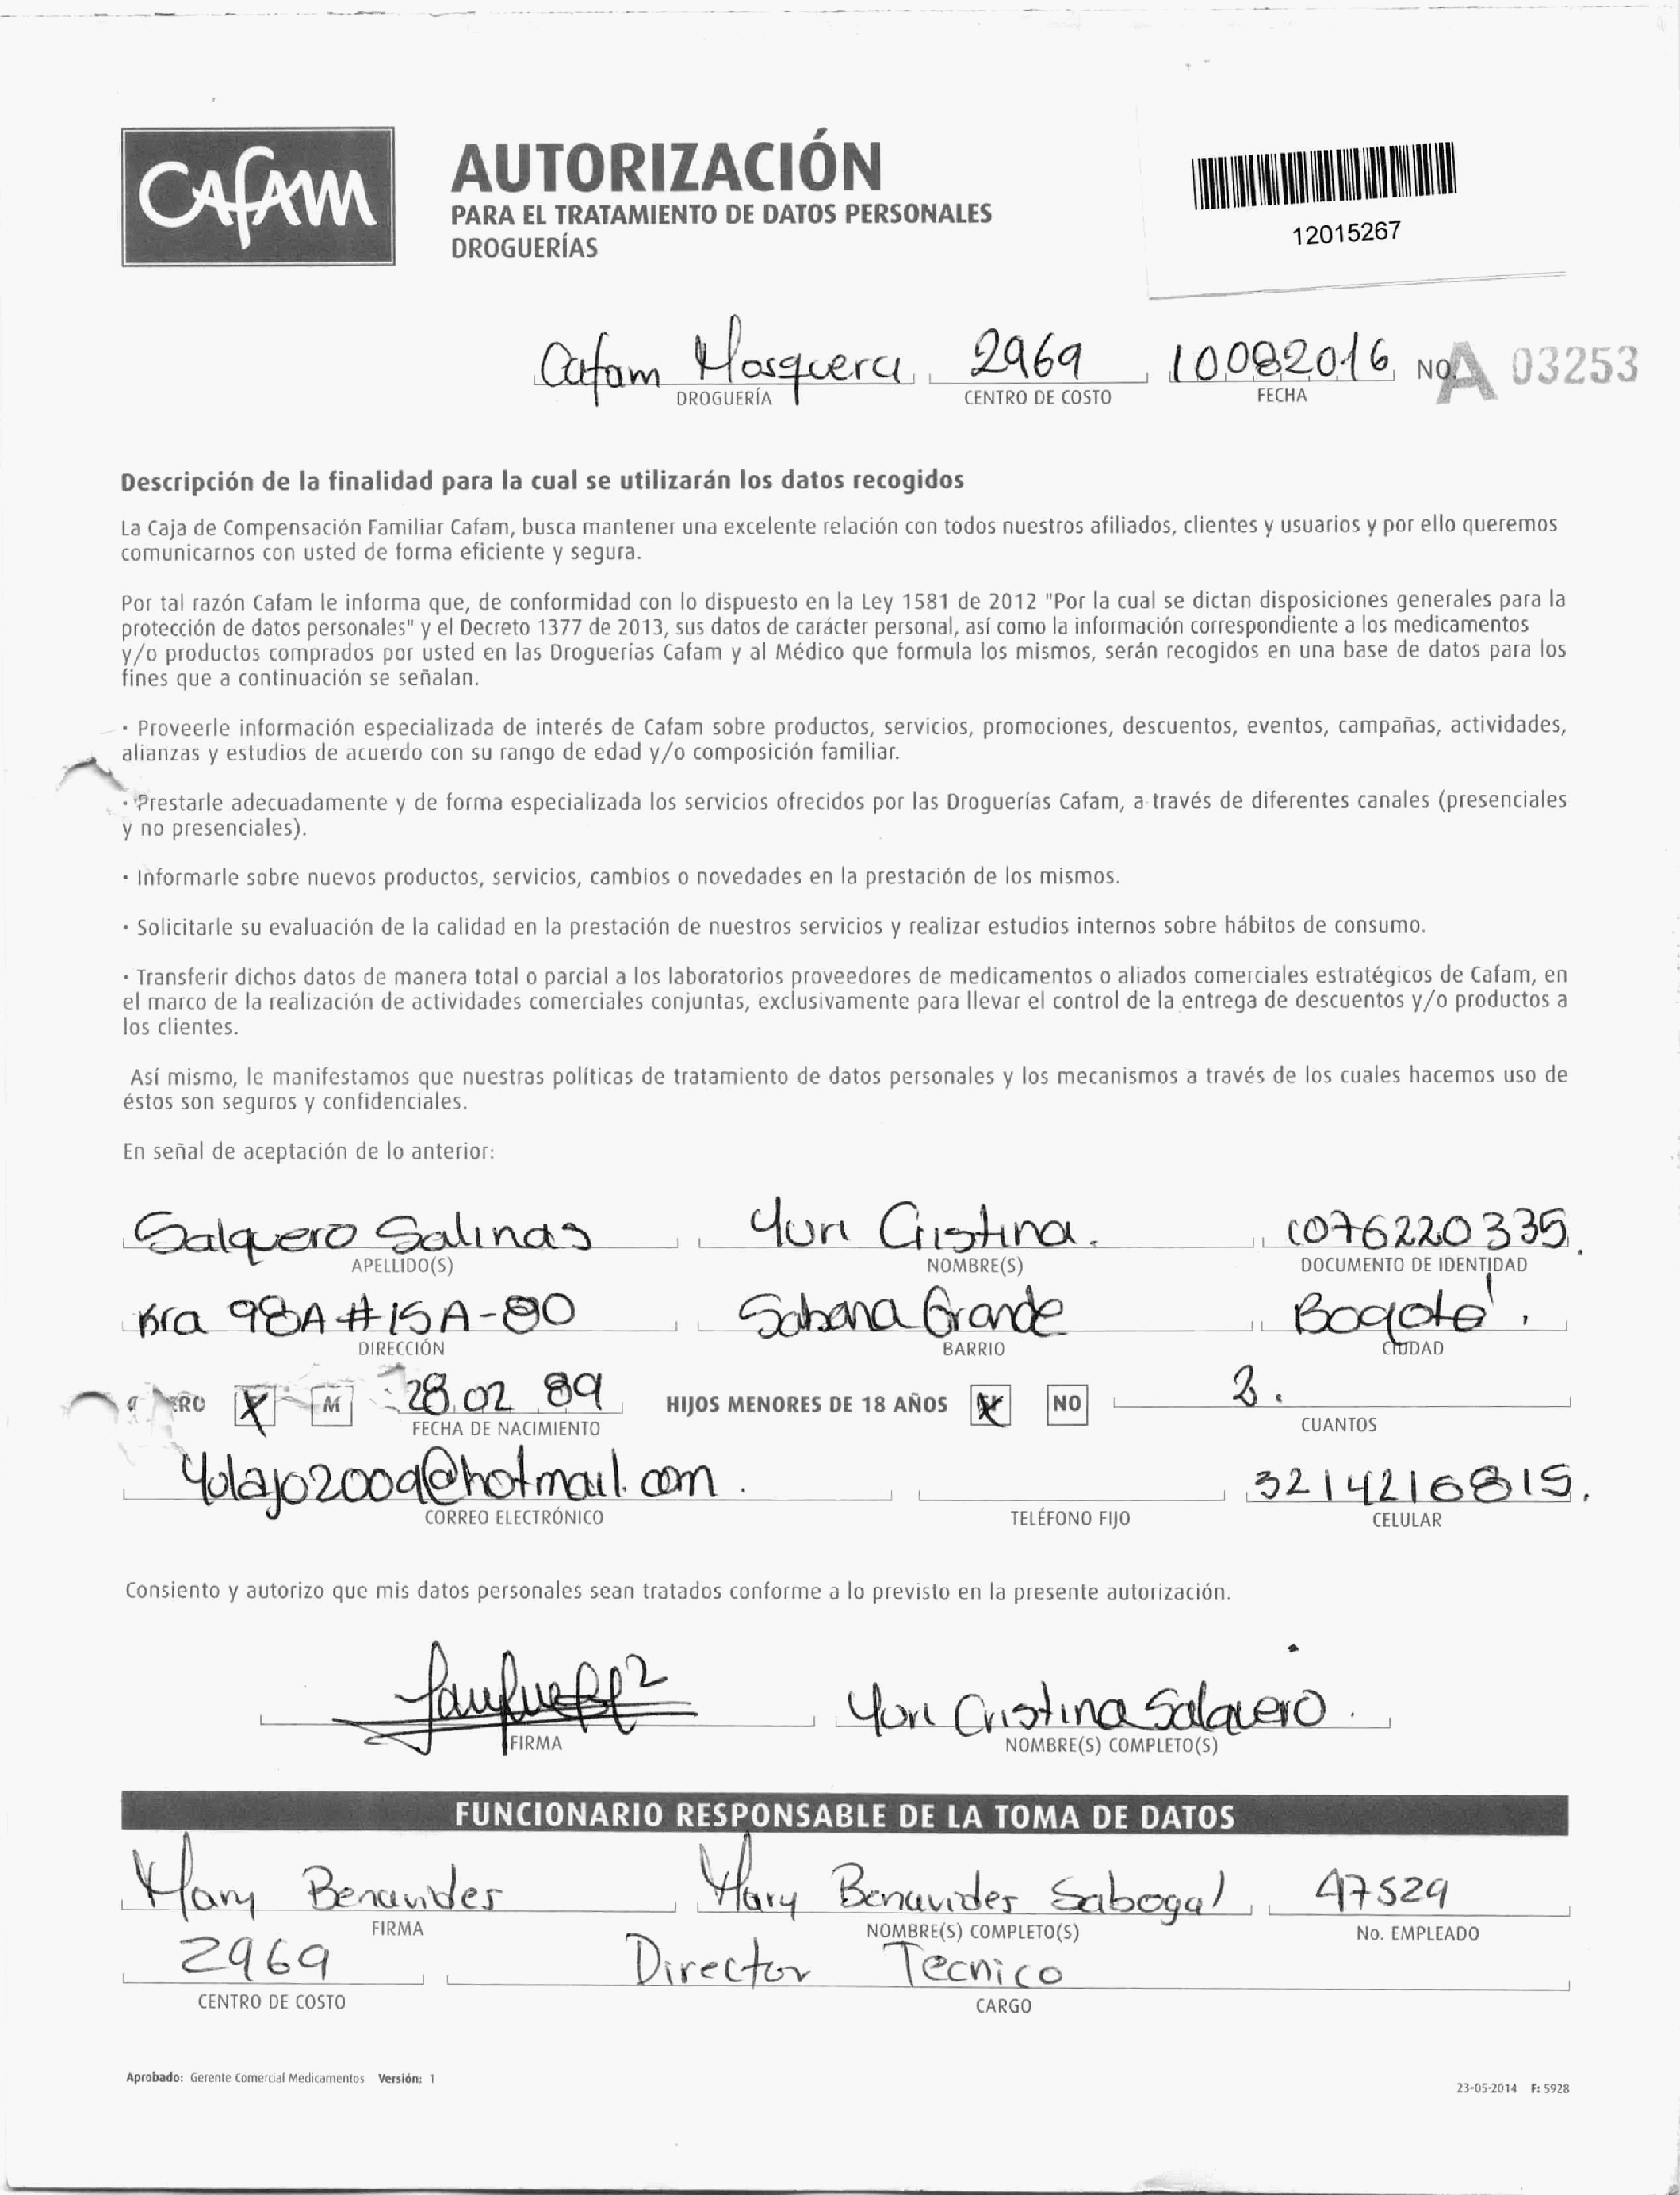 Cafam
AUTORIZACIÓN
PARA EL TRATAMIENTO DE DATOS PERSONALES
DROGUERÍAS
12015267
Cafam Mosquera 2969 10082016 NO. A 03253
DROGUERÍA CENTRO DE COSTO FECHA
Descripción de la finalidad para la cual se utilizarán los datos recogidos
La Caja de Compensación Familiar Cafam, busca mantener una excelente relación con todos nuestros afiliados, clientes y usuarios y por ello queremos
comunicarnos con usted de forma eficiente y segura.
Por tal razón Cafam le informa que, de conformidad con lo dispuesto en la Ley 1581 de 2012 "Por la cual se dictan disposiciones generales para la
protección de datos personales" y el Decreto 1377 de 2013, sus datos de carácter personal, así como la información correspondiente a los medicamentos
y/o productos comprados por usted en las Droguerías Cafam y al Médico que formula los mismos, serán recogidos en una base de datos para los
fines que a continuación se señalan.
· Proveerle información especializada de interés de Cafam sobre productos, servicios, promociones, descuentos, eventos, campañas, actividades,
alianzas y estudios de acuerdo con su rango de edad y/o composición familiar.
· Prestarle adecuadamente y de forma especializada los servicios ofrecidos por las Droguerías Cafam, a través de diferentes canales (presenciales
y no presenciales).
· Informarle sobre nuevos productos, servicios, cambios o novedades en la prestación de los mismos.
· Solicitarle su evaluación de la calidad en la prestación de nuestros servicios y realizar estudios internos sobre hábitos de consumo.
· Transferir dichos datos de manera total o parcial a los laboratorios proveedores de medicamentos o aliados comerciales estratégicos de Cafam, en
el marco de la realización de actividades comerciales conjuntas, exclusivamente para llevar el control de la entrega de descuentos y/o productos a
los clientes.
Así mismo, le manifestamos que nuestras políticas de tratamiento de datos personales y los mecanismos a través de los cuales hacemos uso de
éstos son seguros y confidenciales.
En señal de aceptación de lo anterior:
Salquero Salinas Yuri Cristina. 1076220335.
APELLIDO(S) NOMBRE(S) DOCUMENTO DE IDENTIDAD
Kra 98A # 15A-80 Sabana Grande Bogotá.
DIRECCIÓN BARRIO CIUDAD
X M 28 02 89 HIJOS MENORES DE 18 AÑOS X NO 2.
FECHA DE NACIMIENTO CUANTOS
Yolajo2009@hotmail.com. 3214216815.
CORREO ELECTRÓNICO TELÉFONO FIJO CELULAR
Consiento y autorizo que mis datos personales sean tratados conforme a lo previsto en la presente autorización.
Yuri Cristina Salquero.
FIRMA NOMBRE(S) COMPLETO(S)
FUNCIONARIO RESPONSABLE DE LA TOMA DE DATOS
Mary Benavides Mary Benavides Sabogal 47529
FIRMA NOMBRE(S) COMPLETO(S) No. EMPLEADO
2969 Director Tecnico
CENTRO DE COSTO CARGO
Aprobado: Gerente Comercial Medicamentos Versión: 1
23-05-2014 F: 5928